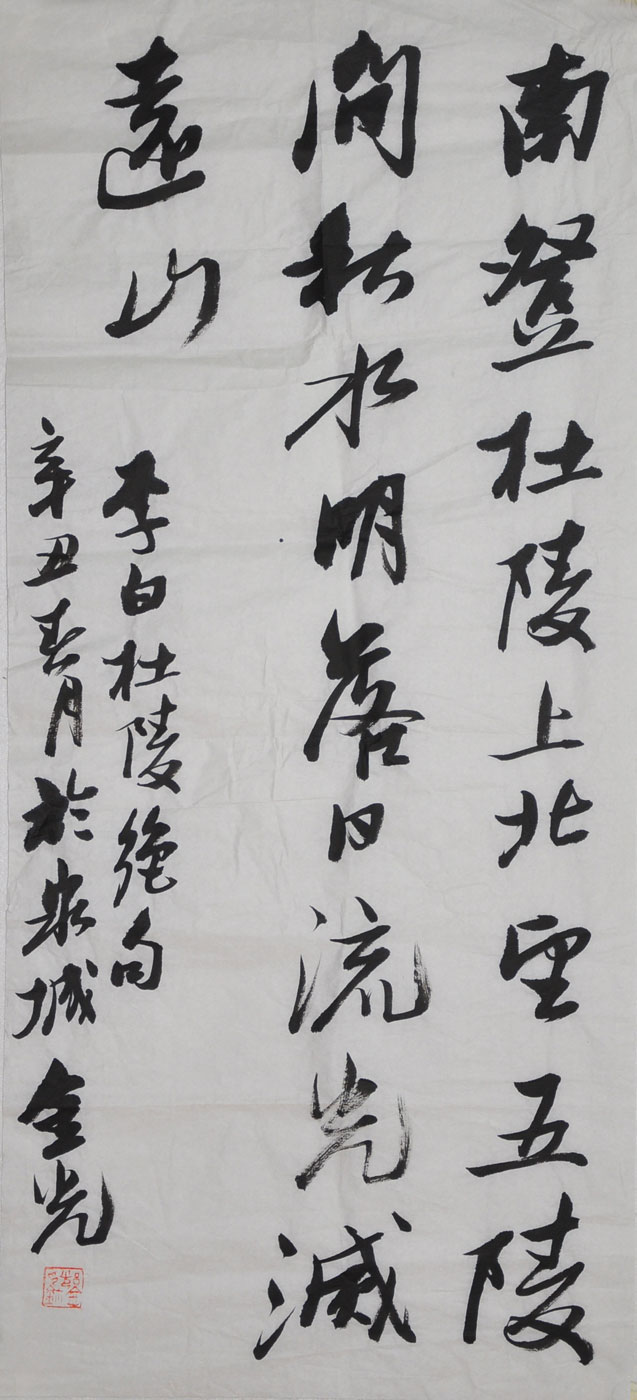 南登杜陵上北望五陵
間秋水明落日流光滅
遠山
李白杜陵絶句
辛丑春月於泉城金光